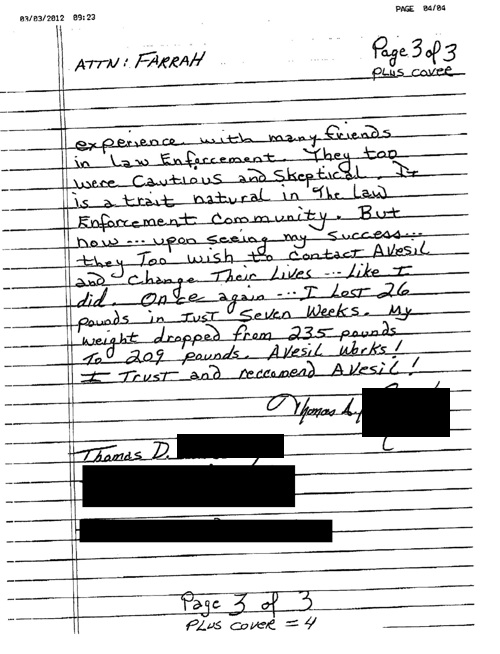 03/03/2012 09:23 PAGE 04/04
ATTN: FARRAH
Page 3 of 3
PLUS COVER
experience with many friends
in Law Enforcement. They too
were Cautious and Skeptical. It
is a trait natural in The Law
Enforcement Community. But
now --- upon seeing my success---
they Too wish to contact AVESIL
and Change Their Lives --- Like I
did. Once again --- I Lost 26
pounds in Just Seven Weeks. My
weight dropped from 235 pounds
To 209 pounds. AVesil Works!
I Trust and reccomend AVesil!
Thomas
Thomas D.
Page 3 of 3
PLUS COVER = 4